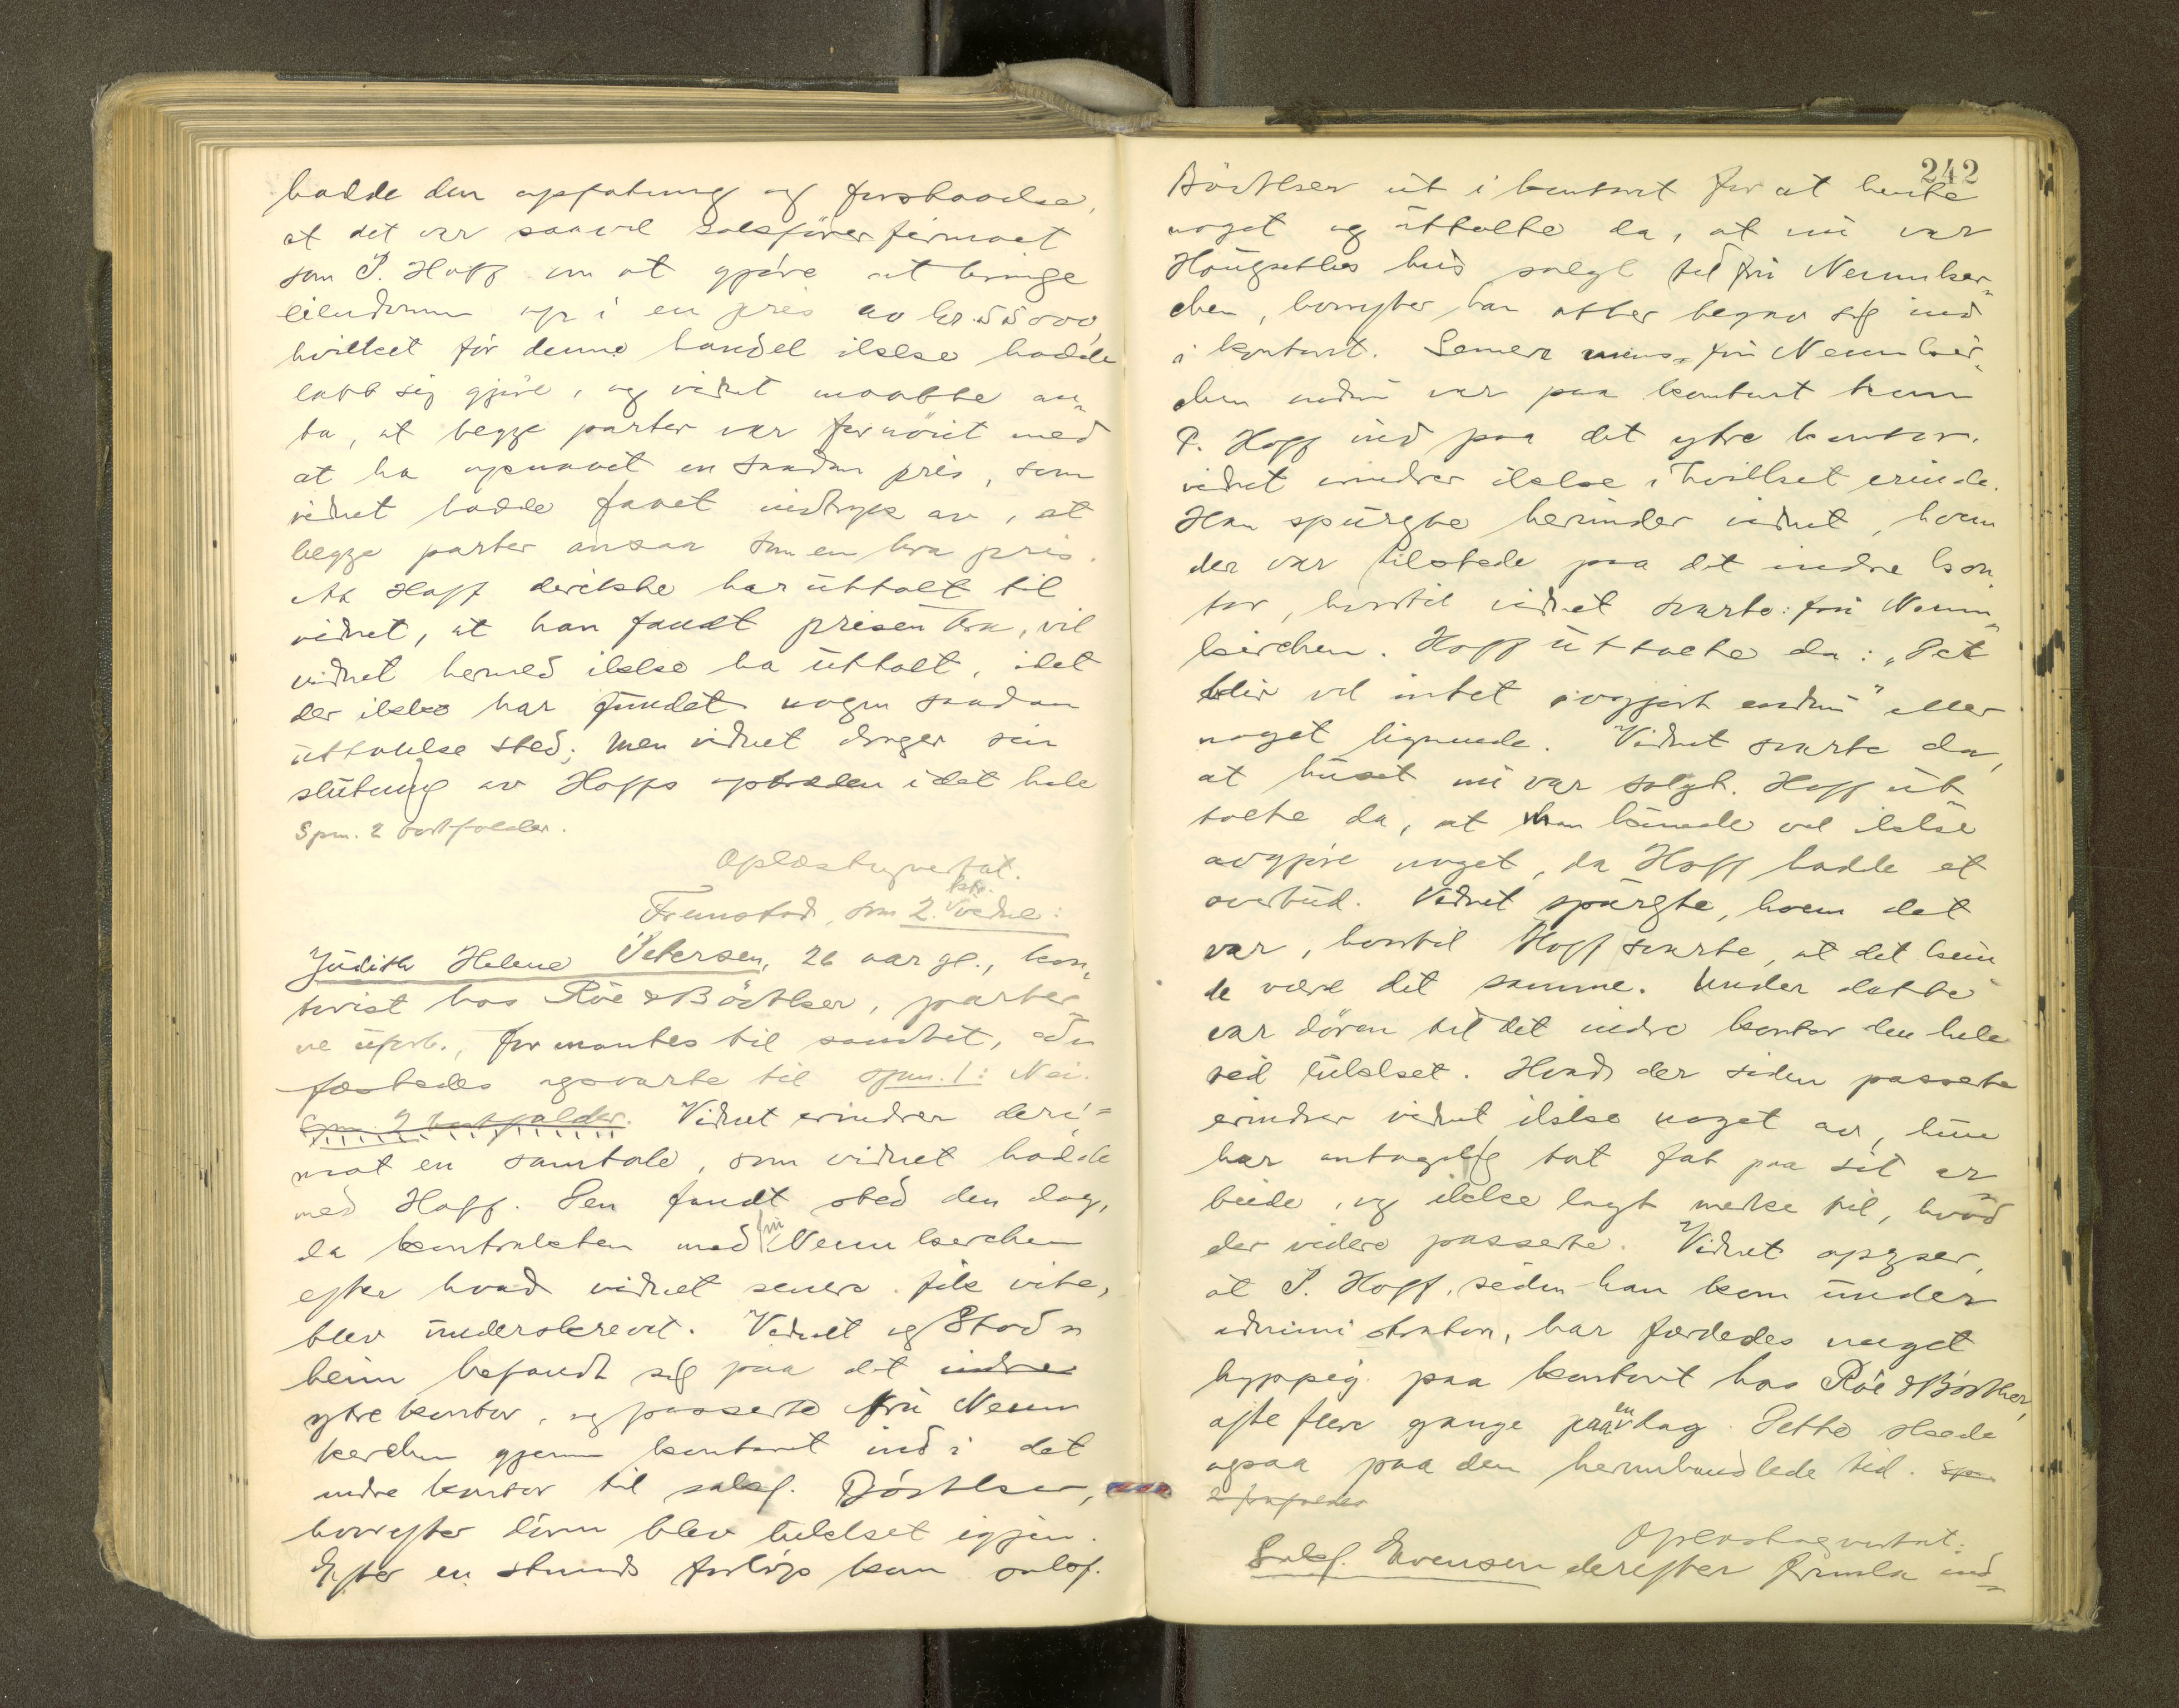 hadde den opfatning og forstaaelse,
at det var saavel saksförerfirmaet
som P. Hoff om at gjöre at bringe
eiendommen op i en pris av kr. 55000,
hvilket för denne handel ikke hadde
latt sig gjöre, og vidnet maatte an„
ta, at begge parter var fornöiet med
at ha opnaaet en saadan pris, som
vidnet hadde faaet indtryk av, at
begge parter ansaa som en bra pris.
At Hoff direkte har uttalt til
vidnet, at han fandt prisen bra, vil
vidnet hermed ikke ha uttalt, idet
der ikke har fundet nogen saadan
uttalelse sted; men vidnet drager sin
slutning av Hoffs optræden i det hele
Spm. 2 bortfalder.
Oplæst og vedtat.
Fremstod, som 2. vidne:
Judith Helene Petersen, 26 aar gl., kon„
torist hos Röe & Böckker, parter
ne uforb., formantes til sandhet, ed„
fæstedes og svarte til spm. 1: Nei.
Spm. 2 bortfalder. Vidnet erindrer deri=
mot en samtale, som vidnet hadde
med Hoff. Den fandt sted den dag,
da kontrakten med fru Neumkerchen
efter hvad vidnet senere fik vite,
blev underskrevet. Vidnet og Stods
heim befandt sig paa det indre
ytre kontor, og passerte fru Neum
kerchen gjennem kontoret ind i det
indre kontor til saksf. Böckker,
hvorefter dören blev lukket igjen.
Efter en stunds forlöp kom saksf.
242
Böckker ut i kontoret for at hente
noget og uttalte da, at nu var
Haugsettes hus solgt til fru Neumker„
chen, hvorefter han atter begav sig ind
i kontoret. Senere mens fru Neumker„
chen endnu var paa kontoret kom
P. Hoff ind paa det ytre kontor.
vidnet erindrer ikke i hvilket erinde.
Han spurgte herunder vidnet, hvem
der var tilstede paa det indre kon„
tor, hvortil vidnet svarte: fru Neum„
kerchen. Hoff uttalte da: „Det
blir vel intet avgjort endnu" eller
noget lignende. Vidnet svarte da,
at huset nu var solgt. Hoff ut
talte da, at man kunde vel ikke
avgjöre noget, da Hoff hadde et
overbud. Vidnet spurgte, hvem det
var, hvortil Hoff svarte, at det kun
de være det samme. Under dette
var dören til det indre kontor den hele
tid lukket. Hvad der siden passerte
erindrer vidnet ikke noget av, hun
har antagelig tat fat paa sit ar„
beide, og ikke lagt merke til, hvad
der videre passerte. Vidnet opgser,
at P. Hoff, siden han kom under
administration, har færdedes meget
hyppig paa kontoret hos Röe & Böckker,
ofte flere gange paa en dag. Dette skede
ogsaa paa den heromhandlede tid. Spm
2 frafaldes
Oplæst og vedtat.
Saksf. Evensen derefter fremla ind„